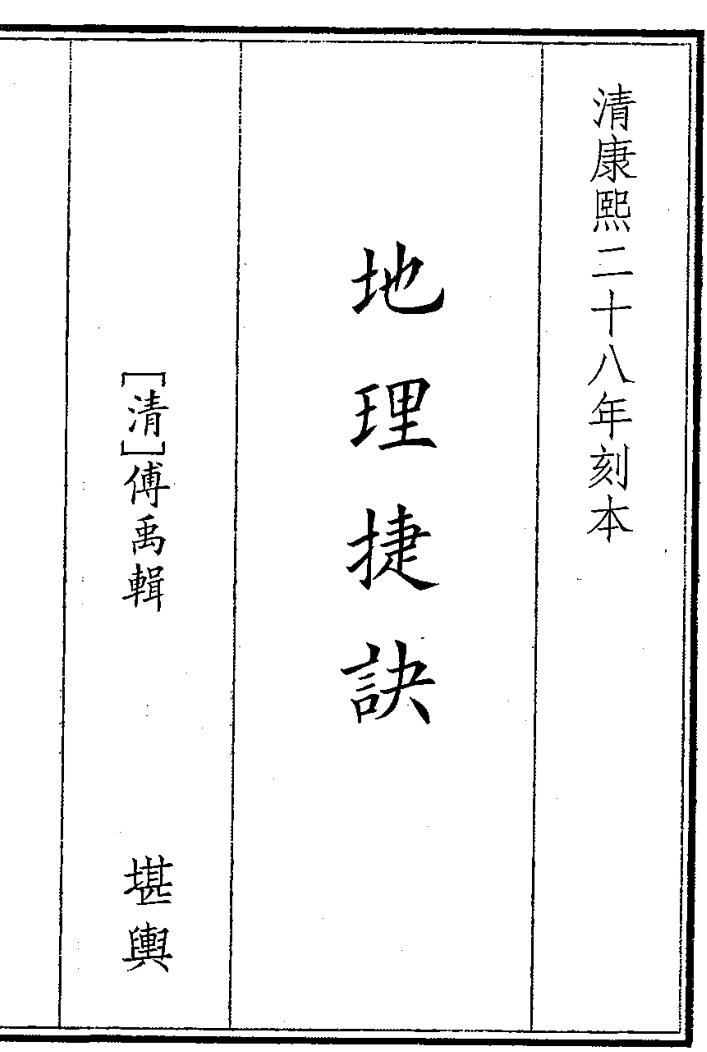 清康熙二十八年刻本
地理捷訣
[清]傅禹輯
堪輿